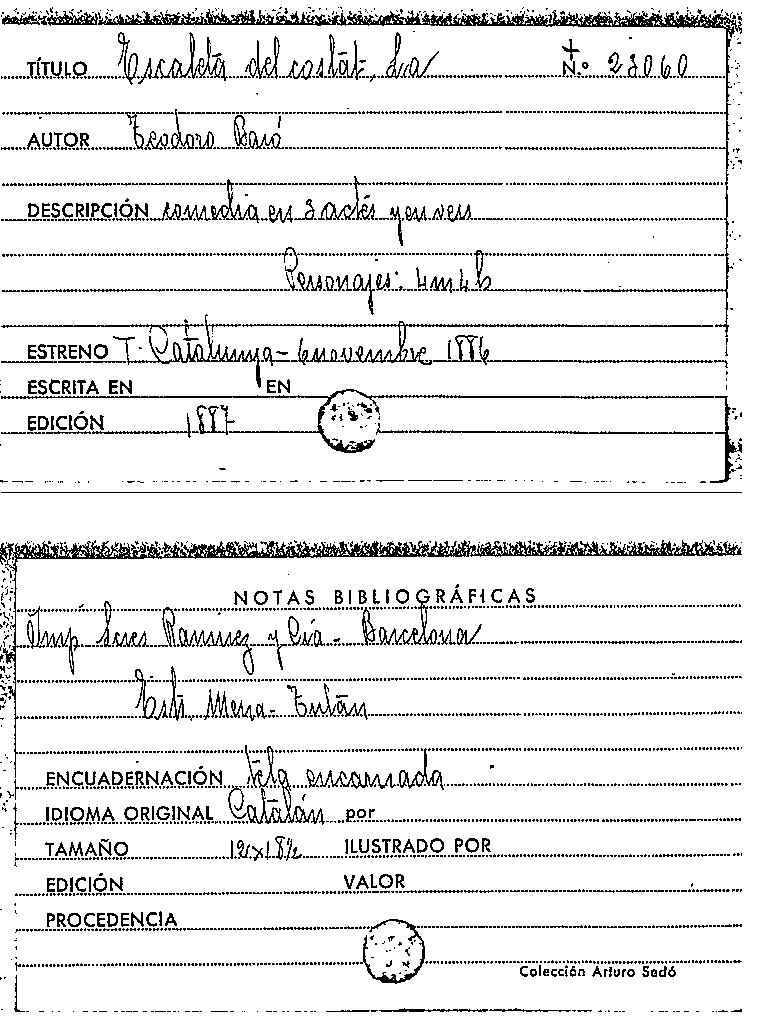 TÍTULO Escaleta del costat, La N.º 23060
AUTOR Teodoro Baró
DESCRIPCIÓN comedia en 3 actes y en vers
Personajes: 4m4h
ESTRENO T. Catalunya - 6 novembre 1886
ESCRITA EN EN
EDICIÓN 1887
NOTAS BIBLIOGRÁFICAS
Imp Sucs Ramirez y Cia - Barcelona
ENCUADERNACIÓN tela encarnada
IDIOMA ORIGINAL Catalán por
TAMAÑO 12x18½ ILUSTRADO POR
EDICIÓN VALOR
PROCEDENCIA
Colección Arturo Sedó